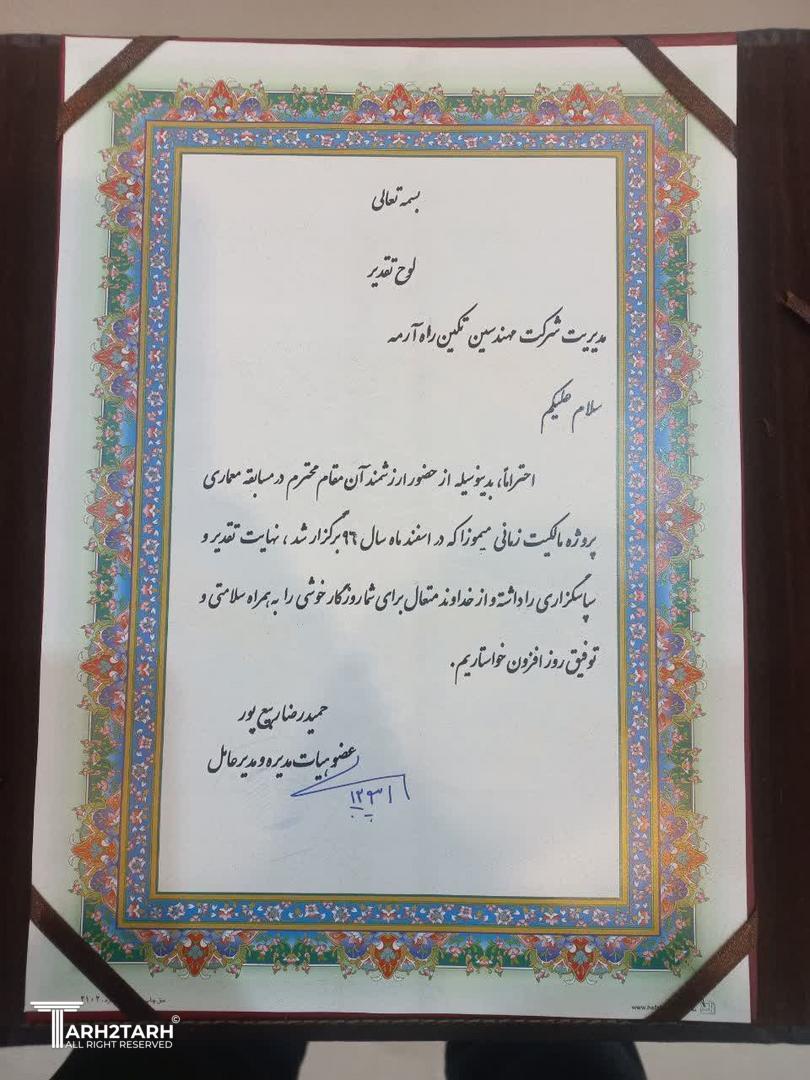 بسمه تعالی
لوح تقدیر
مدیریت شرکت مهندسین تکین راه آرمه
سلام علیکم
احتراماً، بدینوسیله از حضور ارزشمند آن مقام محترم در مسابقه معماری
پروژه مالکیت زمانی میموزا که در اسفند ماه سال ۹۶ برگزار شد، نهایت تقدیر و
سپاسگزاری را داشته و از خداوند متعال برای شما روزگار خوشی را به همراه سلامتی و
توفیق روز افزون خواستاریم.
حمیدرضا ربیع پور
عضو هیات مدیره و مدیرعامل
TARH2TARH©
ALL RIGHT RESERVED